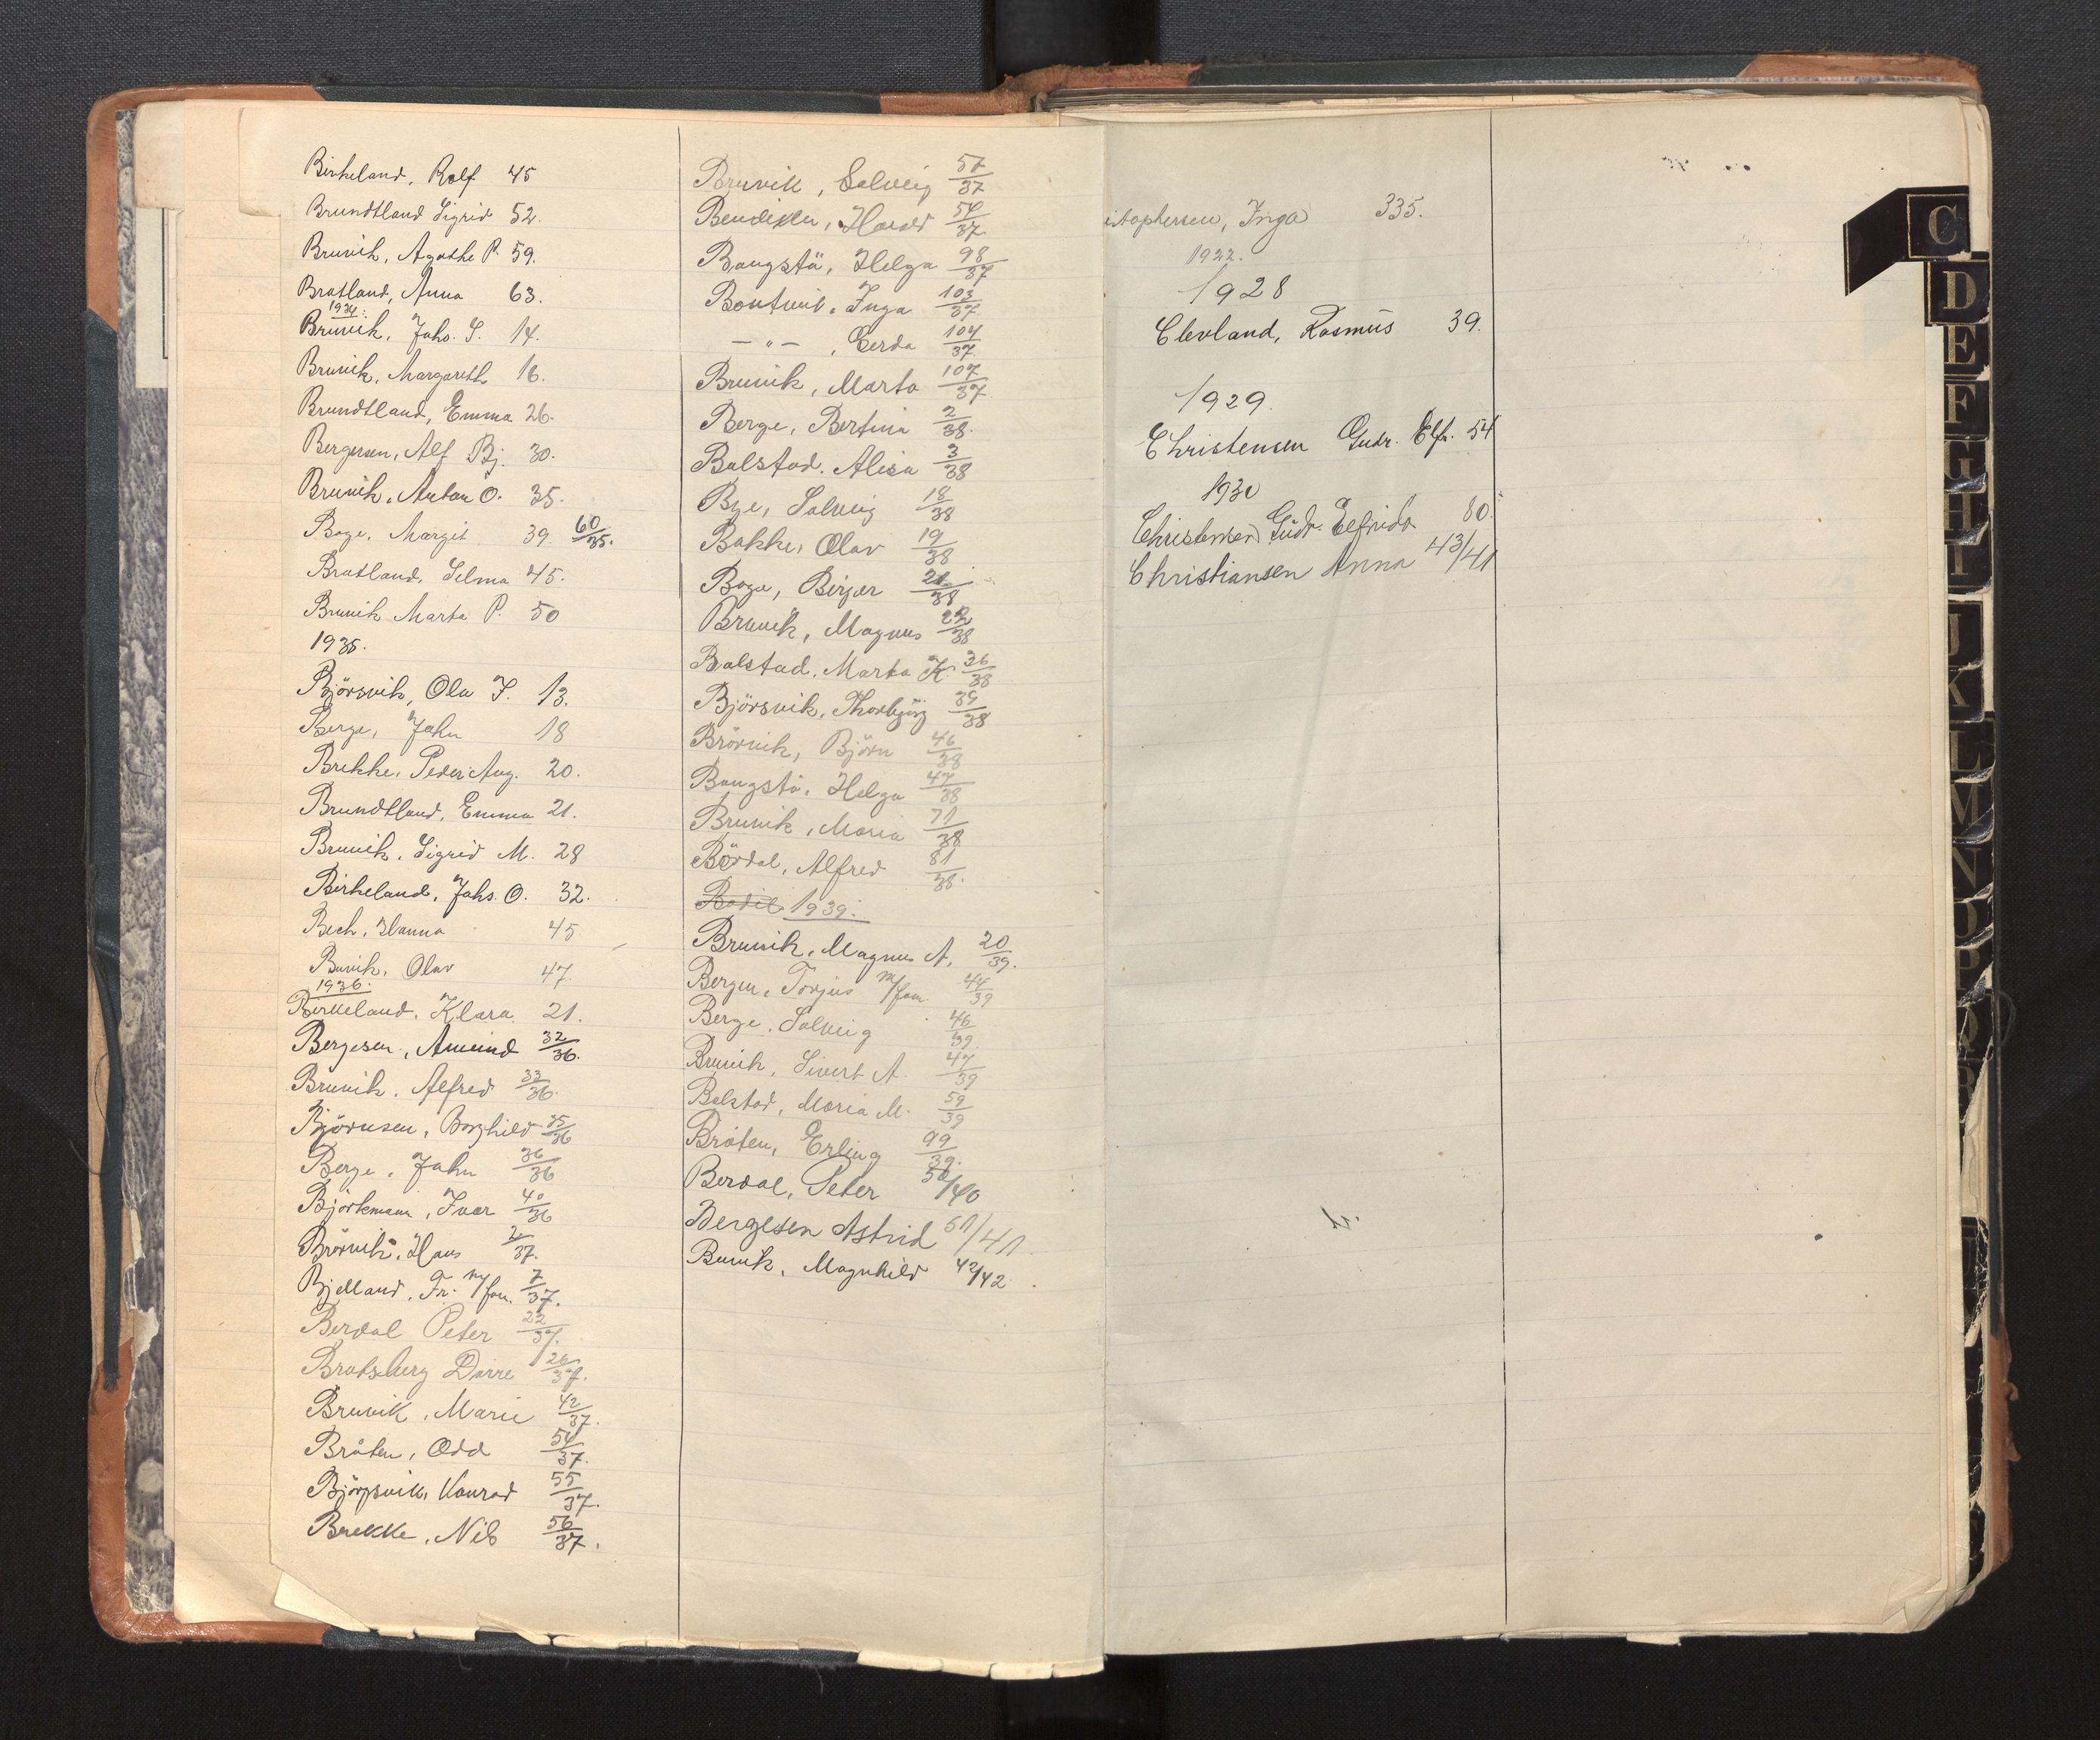 Birkeland, Rolf 45
Brundtland Sigrid 52.
Bruvik, Agathe P. 59.
Bratland, Anna 63.
1934.
Bruvik, Johs. S. 14.
Bruvik, Margareth 16.
Brundtland, Emma 26.
Bergesen, Alf Bj. 30.
Bruvik, Anton O. 35.
Boge, Margit 39. 60/35.
Bratland, Selma 45.
Bruvik Marta P. 50
1935.
Björsvik, Ola J. 13.
Berge, John 18
Brekke, Peder Aug. 20.
Brundtland, Emma 21.
Bruvik, Sigrid M. 28
Birkeland, Johs. O. 32.
Bech, Hanna 45
Buvik, Olav 47.
1936.
Birkeland, Klara 21.
Bergesen, Amund 32/36.
Bruvik, Alfred 33/36.
Björnsen, Borghild 35/36
Berge, John 36/36
Björkmann, Ivar 40/36
Brörvik, Hans 2/37.
Bjelland, Fr. m/fam. 7/37.
Berdal Peter 22/37.
Bratsberg Dorre 26/37.
Bruvik, Marie 42/37.
Bråten, Odd 54/37.
Björgsvik, Konrad 55/37.
Brekke, Nils 56/37.
Bruvik, Solveig 57/37
Bendixen, Harald 54/37.
Bangstå, Helga 98/37
Bontveit, Inga 103/37
— " — , Gerda 104/37.
Bruvik, Marta 107/37
Berge, Bertina 2/38.
Bolstad, Alisa 3/38
Bye, Solveig 18/38
Bakke, Olav 19/38
Boge, Birger 21/38
Bruvik, Magnus 22/38
Bolstad, Marta K. 36/38
Björsvik, Thorbjörg 39/38
Brörvik, Björn 46/38
Bangstå, Helga 47/38
Bruvik, Maria 71/38
Bördal, Alfred 81/38.
Bodil 1939.
Bruvik, Magnus A. 20/39.
Bergen, Torjus m/fam. 44/39
Berge, Solveig 46/39.
Bruvik, Sivert A. 47/39
Bolstad, Maria M. 59/39
Bråten, Erling 99/39.
Berdal, Peter 50/40
Bergesen Astrid 51/41.
Buvik, Magnhild 42/42.
istophersen, Inga 335.
1922.
1928
Clevland, Rasmus 39.
1929.
Christensen Gudr. Elfr. 54
1930
Christensen Gudr. Elfrida 80.
Christiansen Anna 43/41
C
D
E
F
G
H
I
J
K
L
M
N
O
P
Q
R